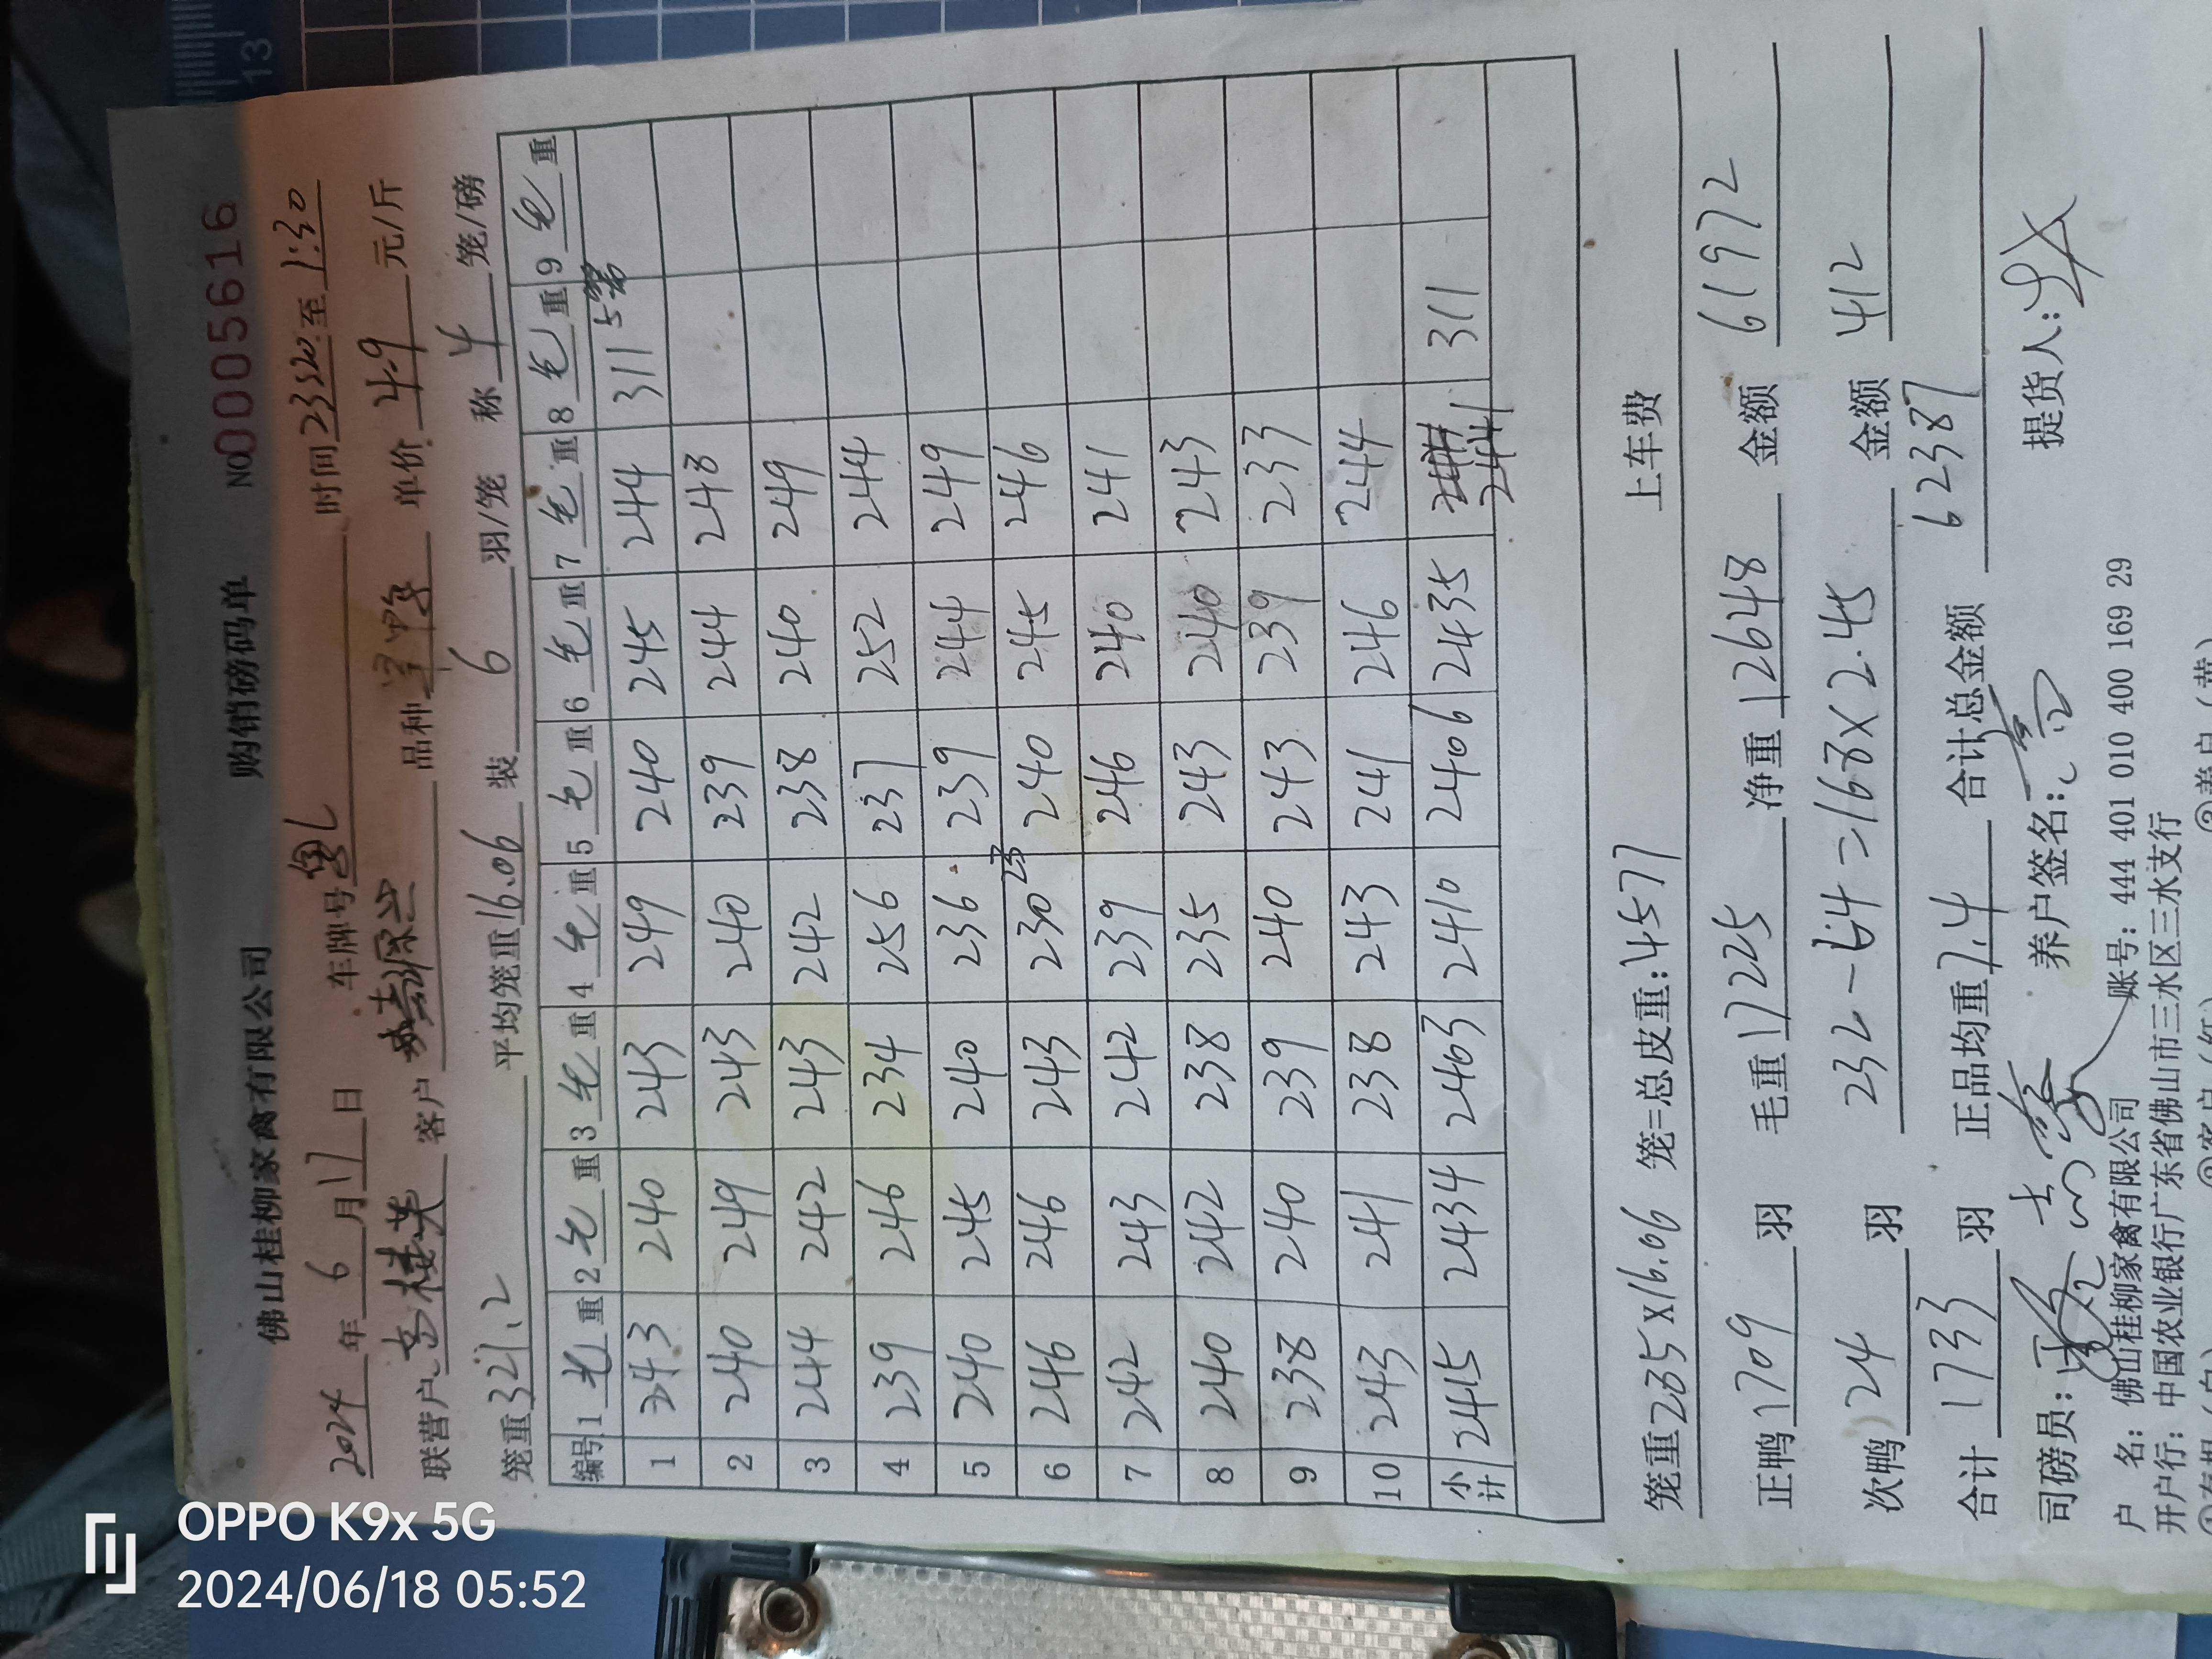 佛山桂柳家禽有限公司 购销磅码单 NO 0005616
2024年6月17日 车牌号 时间2320至1:30
联营户 客户 品种 单价4.9元/斤
笼重321.2 平均笼重16.06 装6羽/笼 称4笼/磅
编号 1毛重 2毛重 3毛重 4毛重 5毛重 6毛重 7毛重 8毛重 9毛重
1 243 240 243 249 240 245 244 311 5笼
2 240 249 243 240 239 244 243
3 244 242 243 242 238 240 249
4 239 246 234 256 237 252 244
5 240 245 240 236 239 244 249
6 246 246 243 230 240 245 246
7 242 243 242 239 246 240 241
8 240 242 238 235 243 240 243
9 238 240 239 240 243 239 233
10 243 241 238 243 241 246 244
小计 2415 2434 2403 2410 2406 2435 2441 311
笼重285X16.06 笼=总皮重:4577 上车费
正鸭1709羽 毛重17225 净重12648 金额61972
次鸭24羽 232-64=168X2.45 金额412
合计1733羽 正品均重7.4 合计总金额62387
司磅员: 养户签名: 提货人:
户 名: 佛山桂柳家禽有限公司 账号: 444 401 010 400 169 29
开户行: 中国农业银行广东省佛山市三水区三水支行
OPPO K9x 5G
2024/06/18 05:52